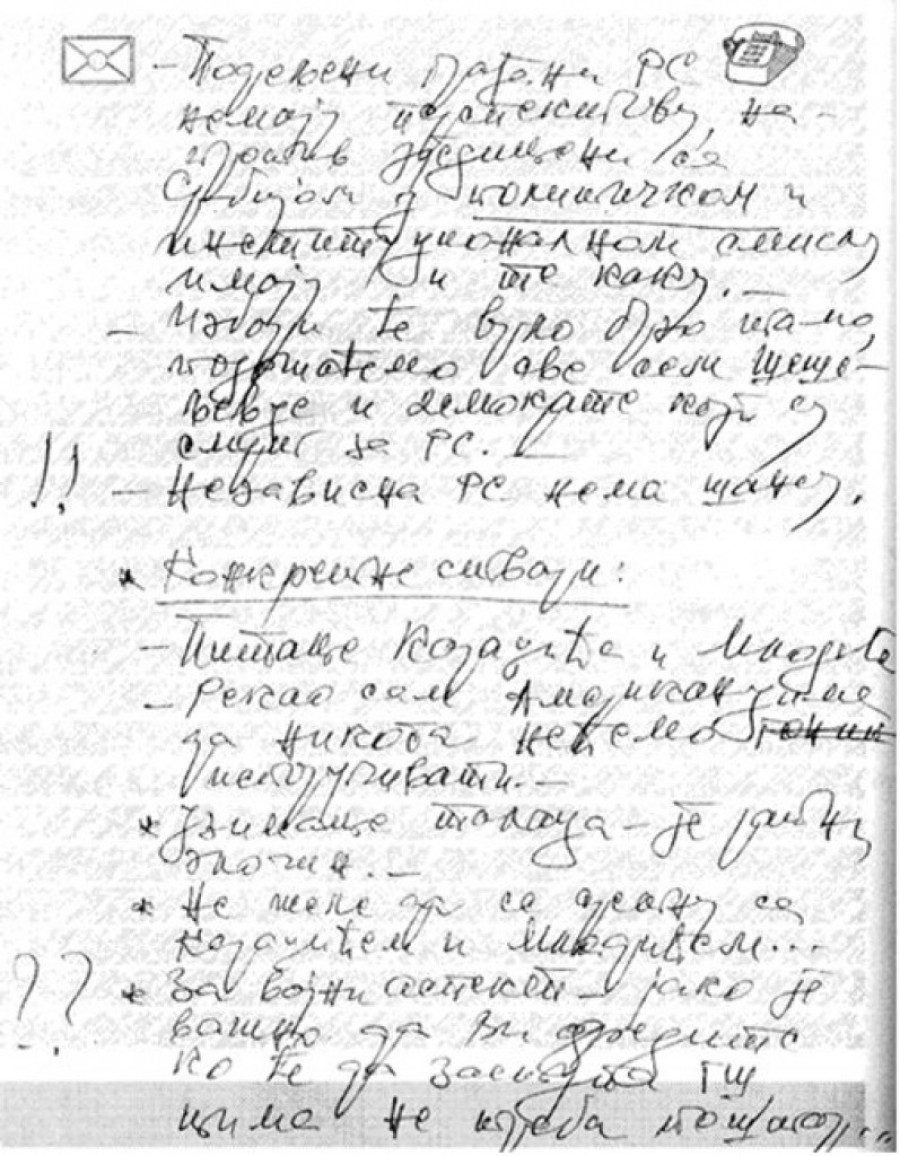 – Подељени грађани РС
немају перспективу, на-
против уједињени са
Србијом у политичком и
институционалном смислу
имају и те какву. –
– Избори ће врло брзо
подржаћемо све осим Шеше-
љевце и демократе који су
за РС. –
!! – Независна РС нема шансу.
* Конкретне ствари:
– Питање Караџића и Младића
– Рекао сам Американцима
да никога нећемо гонити
испоручивати. –
* Узимање талаца – је ратни
злочин. –
* Не желе да се сретну са
Караџићем и Младићем...
?? * За војни аспект – јако је
важно да Ви одредите
ко ће да заступа ГШ
њима не треба